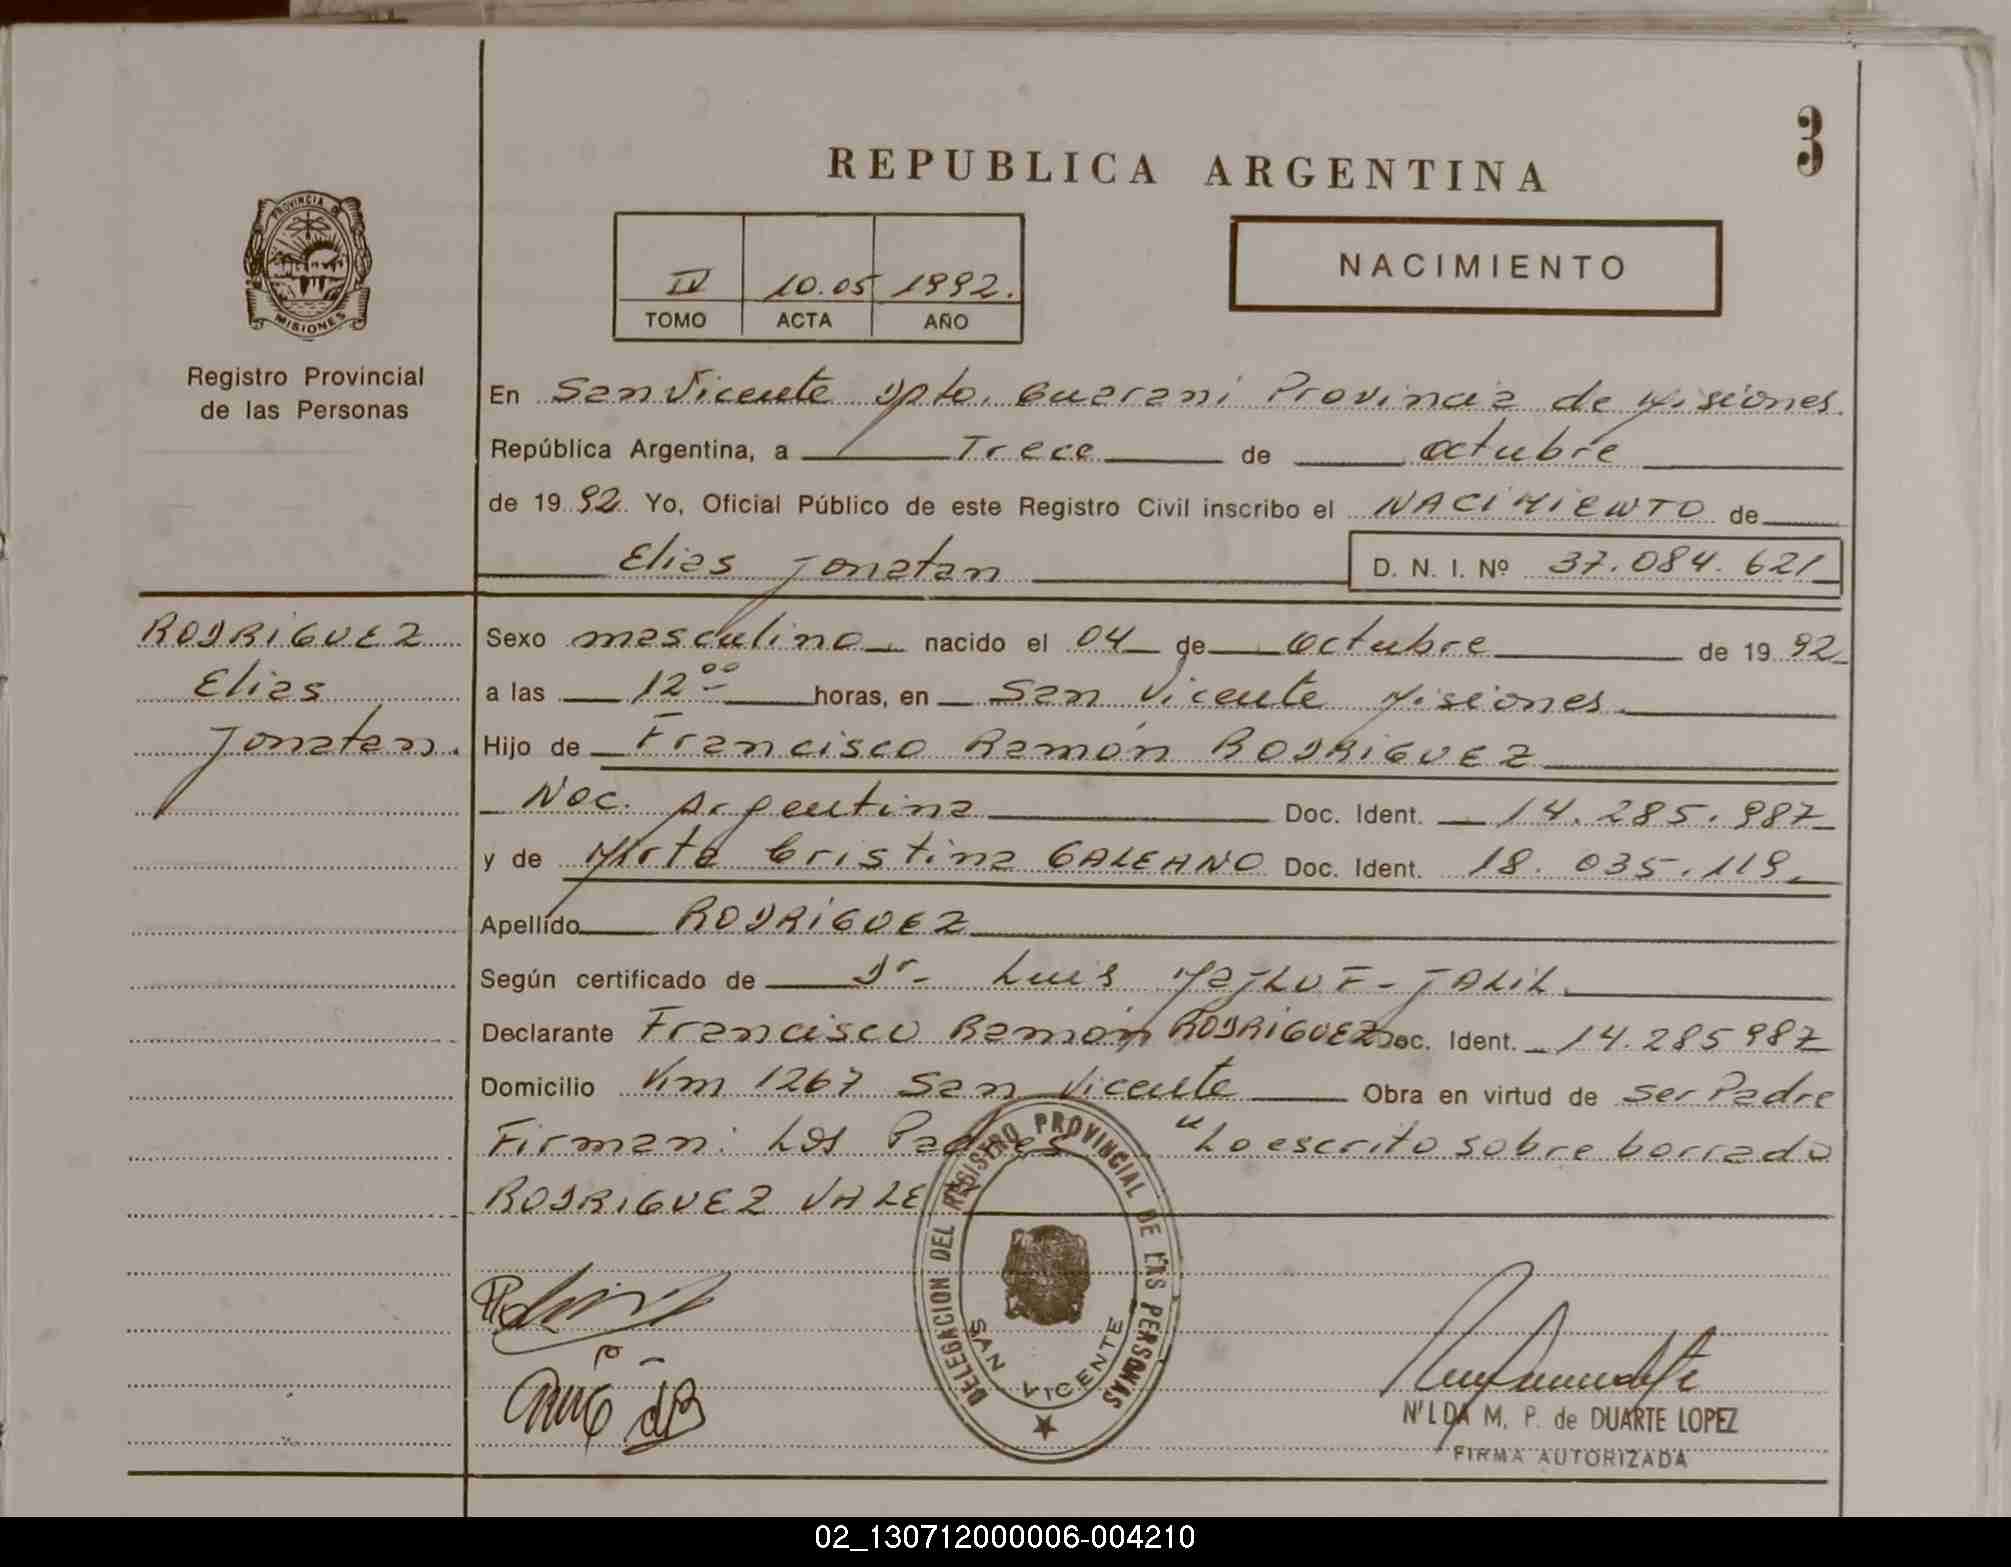 3
REPUBLICA ARGENTINA
PROVINCIA DE
MISIONES
Registro Provincial
de las Personas
IV 10.05 1992.
TOMO ACTA AÑO
NACIMIENTO
En San Vicente Dpto. Guarani Provincia de Misiones.
República Argentina, a Trece de octubre
de 19 92 Yo, Oficial Público de este Registro Civil inscribo el NACIMIENTO de
Elias Jonatan D. N. I. Nº 37.084.621
RODRIGUEZ
Elias
Jonatan.
Sexo masculino nacido el 04 de octubre de 19 92
a las 12 00 horas, en San Vicente Misiones
Hijo de Francisco Ramón RODRIGUEZ
Nac. Argentina Doc. Ident. 14.285.987
y de Mirta Cristina GALEANO Doc. Ident. 18.035.119.
Apellido RODRIGUEZ
Según certificado de Dr. Luis MAJLUF-JALIL
Declarante Francisco Ramón RODRIGUEZ Doc. Ident. 14.285987
Domicilio Km 1267 San Vicente Obra en virtud de ser Padre
Firman: Los Padres "Lo escrito sobre borrado
RODRIGUEZ VALE
DELEGACION DEL REGISTRO PROVINCIAL DE LAS PERSONAS
SAN VICENTE
NILDA M. P. de DUARTE LOPEZ
FIRMA AUTORIZADA
02_130712000006-004210